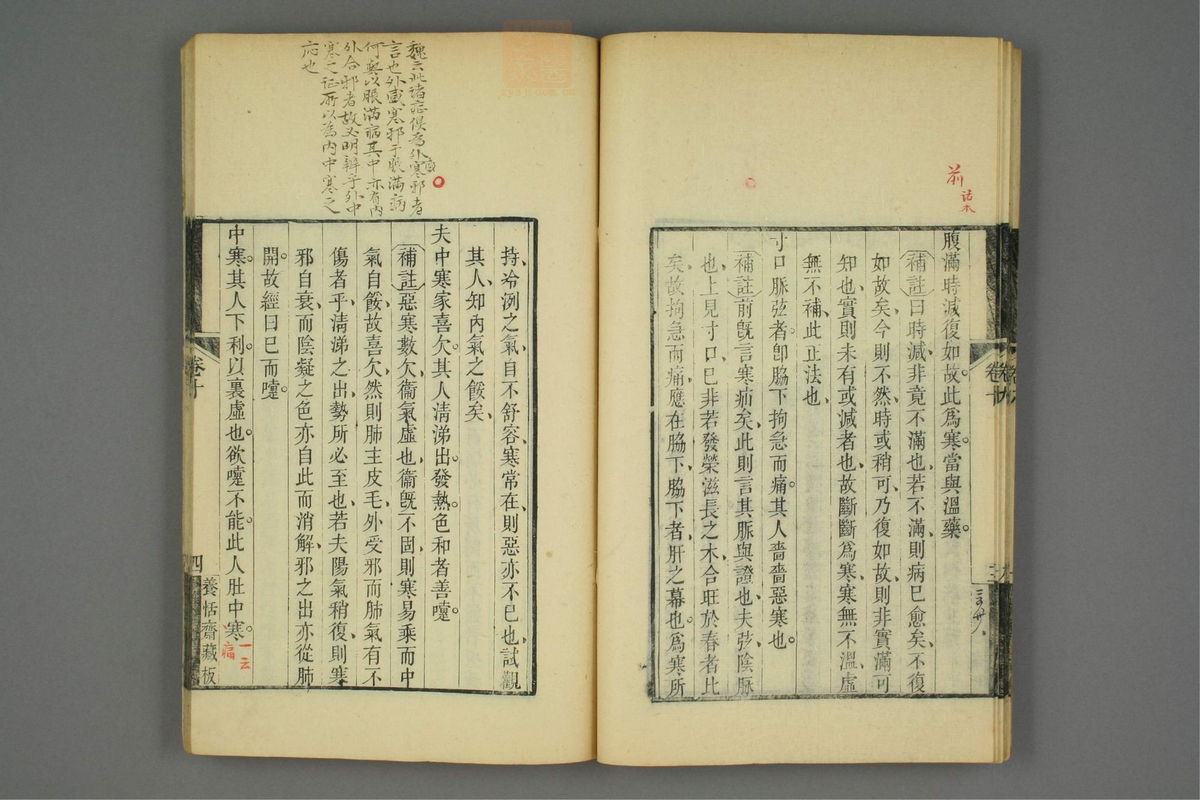 前
諸本
腹滿時減復如故此爲寒當與溫藥
補註曰時減非竟不滿也若不滿則病已愈矣不復
如故矣今則不然時或稍可乃復如故則非實滿可
知也實則未有或減者也故斷斷爲寒寒無不溫虛
無不補此正法也
寸口脈弦者卽脇下拘急而痛其人嗇嗇惡寒也
補註前旣言寒疝矣此則言其脈與證也夫弦陰脈
也上見寸口已非若發榮滋長之木合旺於春者比
矣故拘急而痛應在脇下脇下者肝之募也爲寒所
魏云此諸症候爲外寒邪者
言也外感寒邪于脹滿病
何與以脹滿病其中亦有內
外合邪者故又明辯乎外中
寒之証所以爲內中寒之
應也
持冷洌之氣自不舒容寒常在則惡亦不已也試觀
其人知內氣之餒矣
夫中寒家喜欠其人清涕出發熱色和者善嚏
補註惡寒數欠衞氣虛也衞旣不固則寒易乘而中
氣自餒故喜欠然則肺主皮毛外受邪而肺氣有不
傷者乎清涕之出勢所必至也若夫陽氣稍復則寒
邪自衰而陰凝之色亦自此而消解邪之出亦從肺
開故經曰已而嚏
中寒其人下利以裏虛也欲嚏不能此人肚中寒
一云
痛
卷十
四
養恬齋藏板